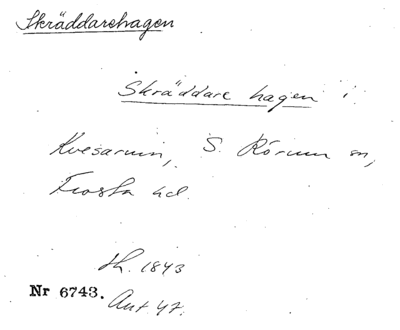 Skräddarehagen
Skräddare hagen i
Kvesarum, S. Rörum sn,
Frosta hd.
Sk. 1843
Nr 6743. Ant. 47.